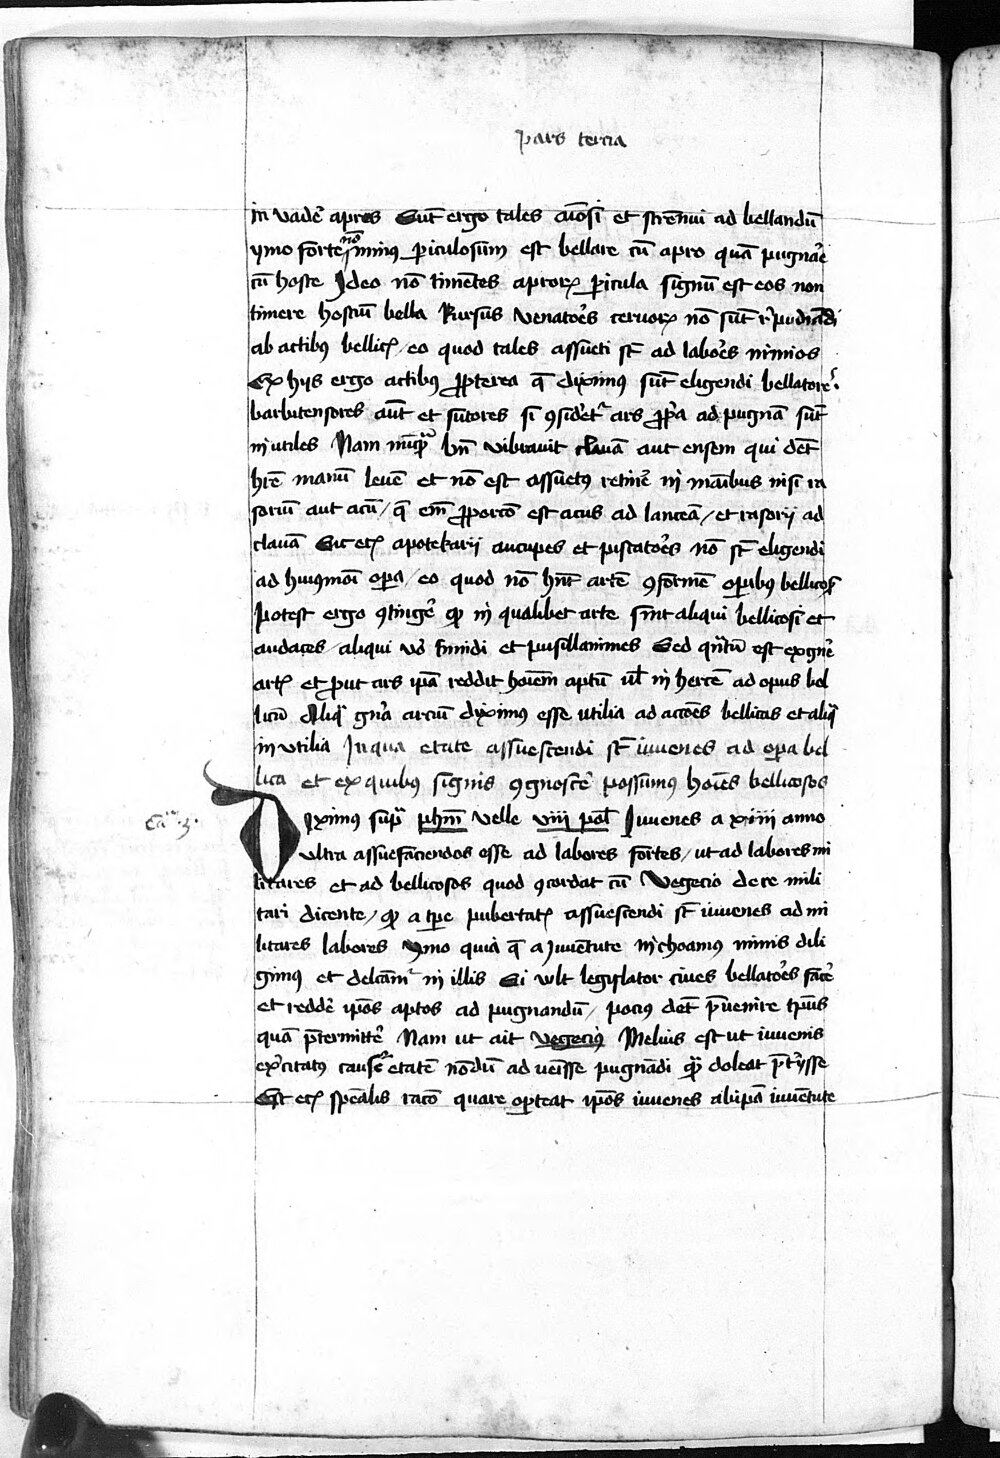 pars tercia
in vadē apros Sūt ergo tales aīosi et strēnui ad bellandū
ymo forte nō minus ꝑiculosum est bellare cū apro quā pugnāe
cū hoste Ideo nō timētes aproꝝ ꝑicula signū est eos non
timere hostiū bella Rursus venatōes ceruoꝝ nō sūt rꝑudiādi
ab actibꝰ bellicꝭ / eo quod tales assueti st̄ ad labōes nimios
Ex hijs ergo actibꝰ ꝓpterea q̄ diximꝰ sūt eligendi bellatore.
barbitensores aūt et sutores si ꝯsidet᷑ ars ꝓpa ad pugnā sūt
inutiles Nam nūq̄ bn̄ vibrauit clauā aut ensem qui dēt
hr̄e manū leuē et nō est assuetꝰ retinē in manibus nisi ra
soriū aut acū / q̄ em̄ ꝓporcō est acus ad lanceā / et rasorij ad
clauā Sic ecꝭ apotekarij aucupes et piscatōes nō st̄ eligendi
ad huiꝰmōi oꝑa / eo quod nō hn̄t artē ꝯformē oꝑibꝰ bellicoꝝ
Potest ergo ꝯtingē ꝙ in qualibet arte sint aliqui bellicosi et
audaces / aliqui vō timidi et pusillanimes Sed qn̄tū est ex gn̄e
artꝭ et ꝓut ars ip̄a reddit hoīem aptū ul̄ in hertē ad opus bel
licū Aliq̄ gn̄a arciū diximꝰ esse utilia ad actōes bellicas et aliq̄
in vtilia In qua etate assuescendi st̄ iuuenes ad oꝑa bel
lica et ex quibꝰ signis ꝯgnoscē possumus hoīes bellicosos
Cam 3.
Diximꝰ sup̄ ph̄m velle viij pol̄ Iuuenes a xiiij anno
vltra assuefaciendos esse ad labores fortes / ut ad labores mi
litares et ad bellicosos quod ꝯcordat cū Vegecio de re mili
tari dicente / ꝙ a tp̄e pubertatꝭ assuescendi st̄ iuuenes ad mi
litares labores ymo quia q̄ a Iuuētute inchoamꝰ nimis dili
gimꝰ et delcam᷑ in illis Si vlt legislator ciues bellatōes facē
et reddē ip̄os aptos ad pugnandū / pocius dēt p̄uenire tp̄us
quā p̄termittē Nam ut ait Vegeciꝰ Melius est ut iuuenis
exc̄itatꝰ etatē nōdū ad uēisse pugnādi q̄ doleat p̄tijsse
Est ecꝭ spēalis racō quare oꝑteat ip̄os iuuenes ab ip̄a iuuētute